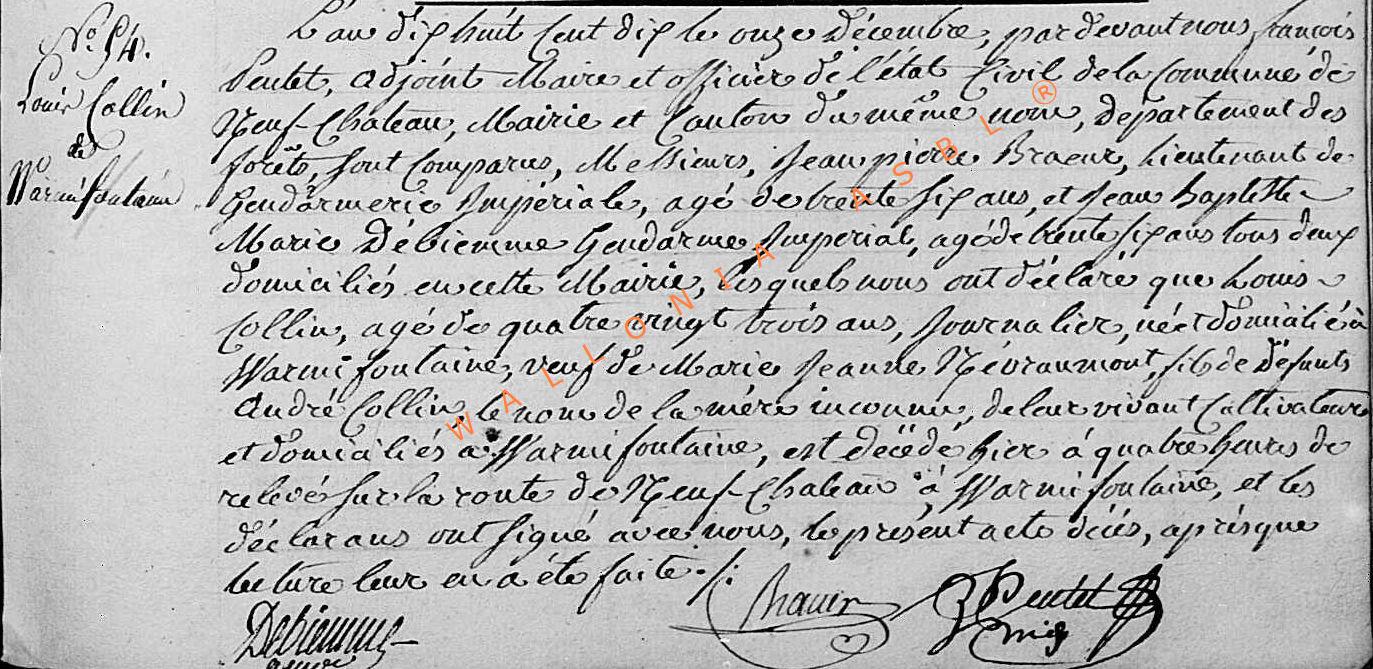 No. 54.
Louis Collin
de
Warmifontaine
L'an dix huit cent dix le onze Décembre, par devant nous françois
Pentet, adjoint Maire et officier de l'état Civil de la Commune de
Neuf-Chateau, Mairie et Canton du même nom, departement des
forêts, sont Comparus, Messieurs, Jean pierre Lieutenant de
Gendarmerie Impériale, agé de trente six ans, et Jean baptiste
Marie Débiemme Gendarme Imperial, agé de trente six ans tous deux
domiciliés en cette Mairie, lesquels nous ont déclaré que Louis
Collin, agé de quatre vingt trois ans, Journalier, né et domicilié à
Warmifontaine, veuf de Marie Jeanne Névraumont, fils de Défunts
André Collin, le nom de la mère inconnu, de leur vivant Cultivateurs
et domiciliés à Warmifontaine, est décédé hier à quatre heures de
relevé sur la route de Neuf-Chateau à Warmifontaine, et les
déclarans ont signé avec nous, le présent acte décès, après que
lecture leur en a été faite ./.
Debiemme
Pentet
WALLONIA ASBL ®